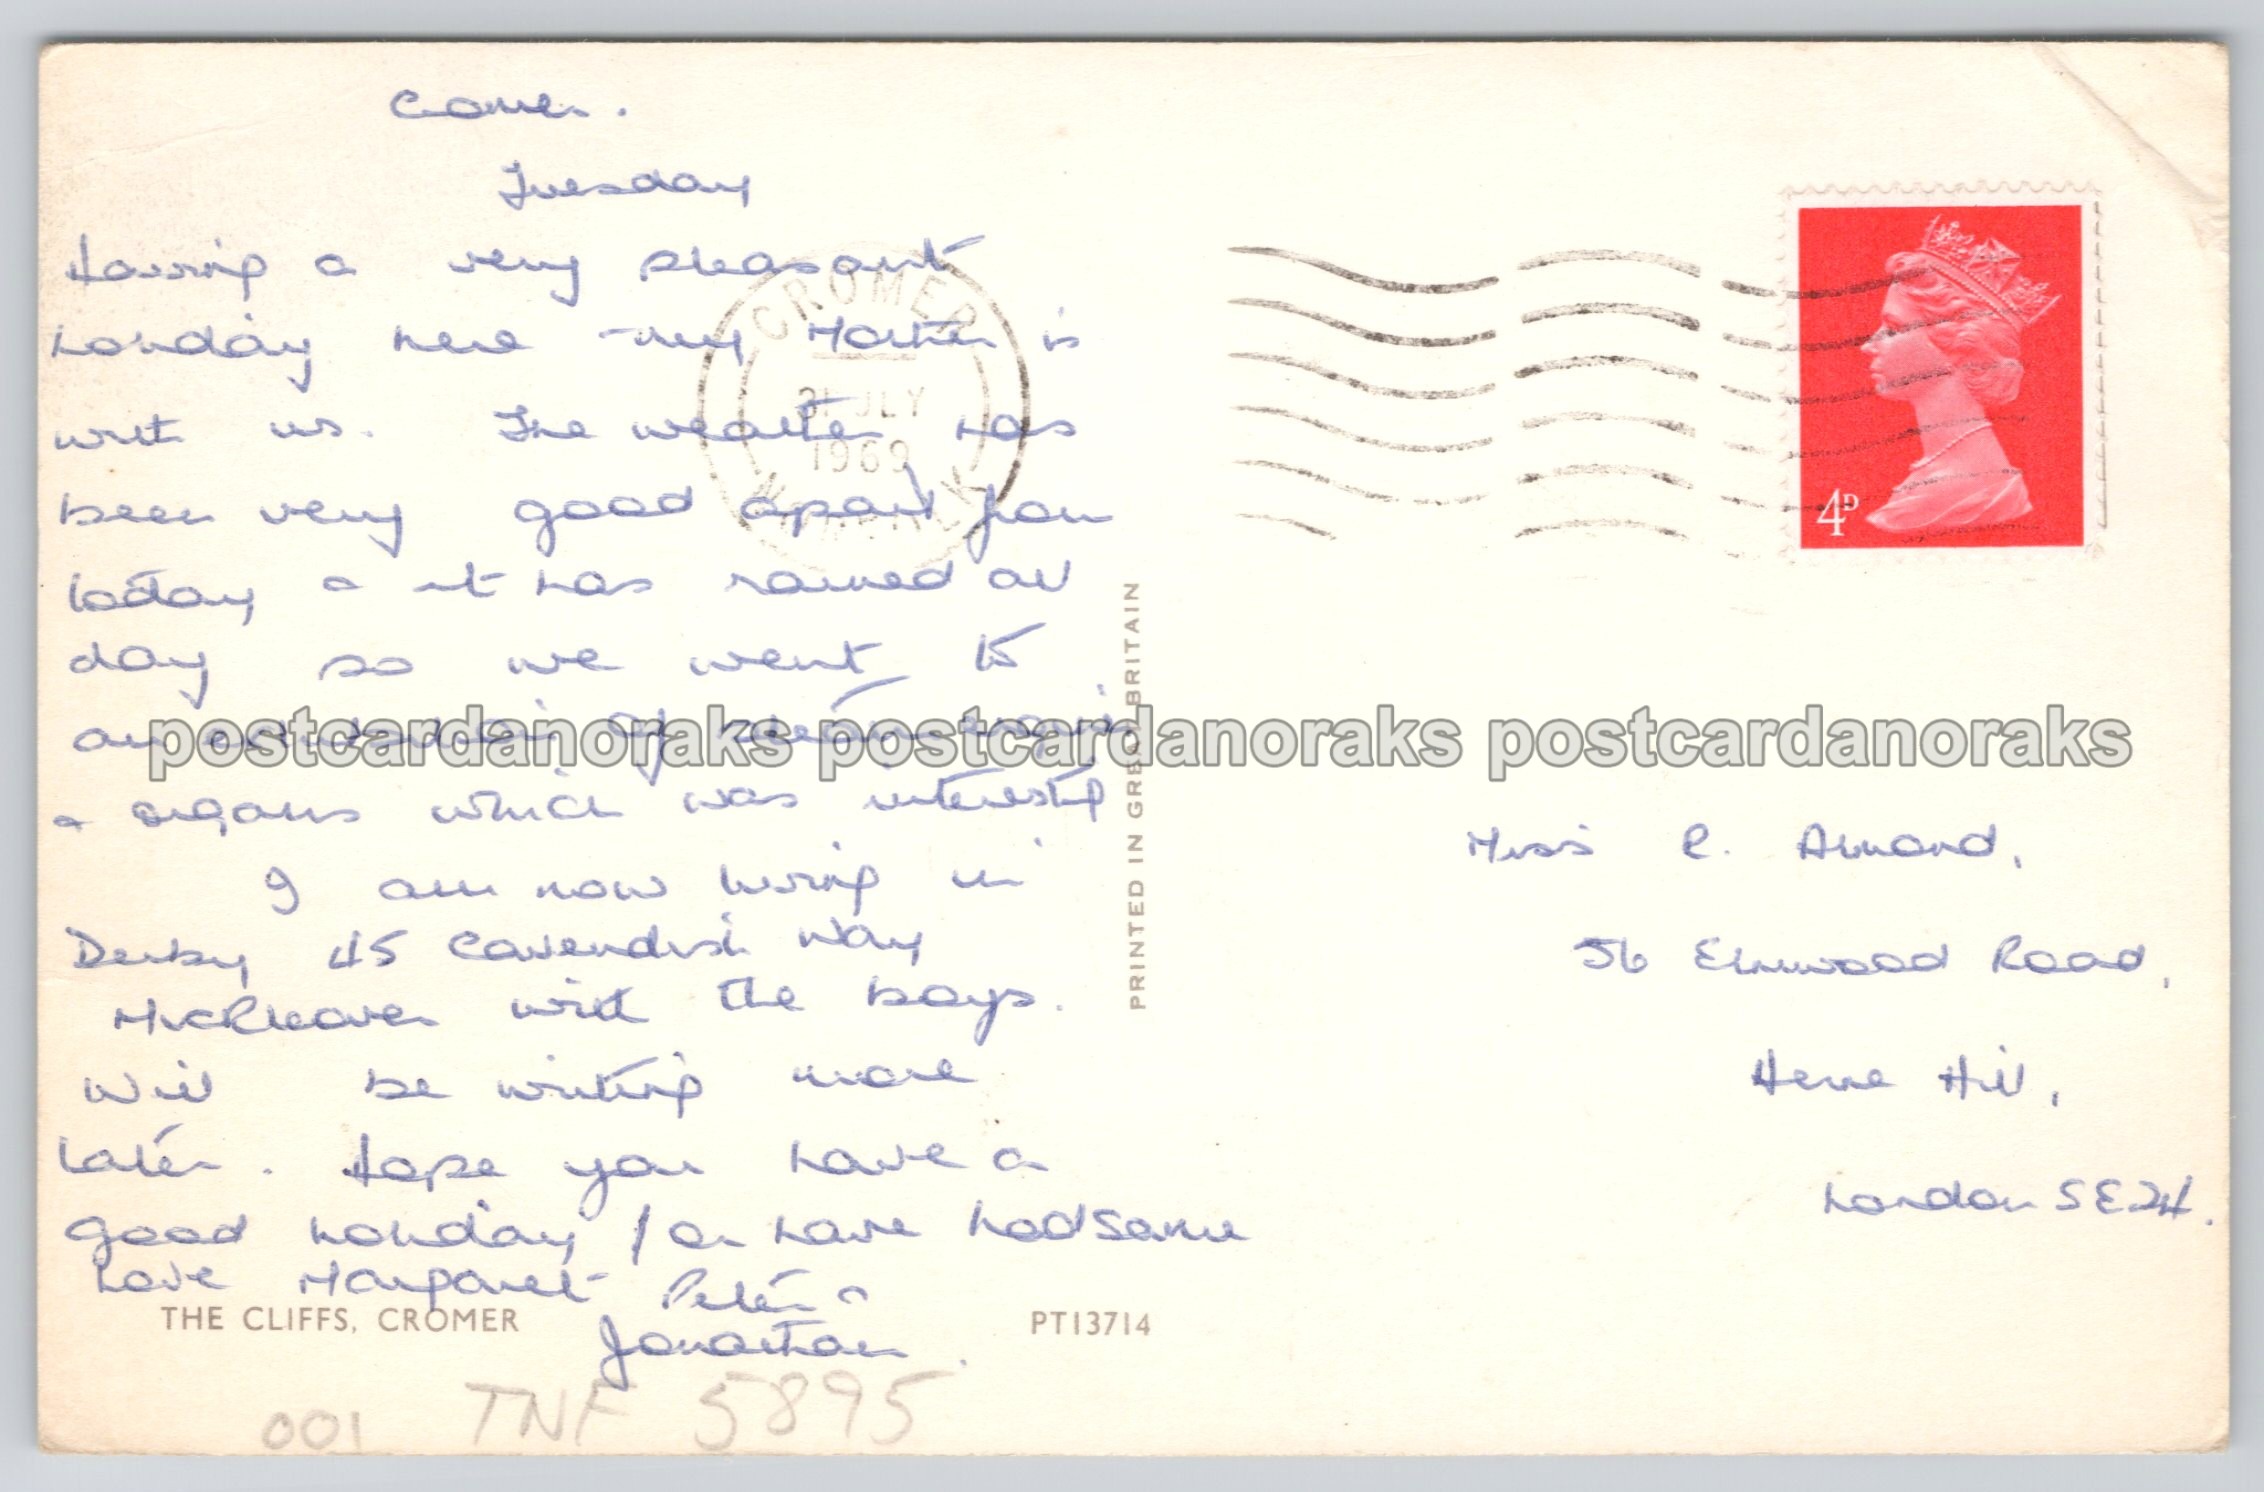 Cromer.
Tuesday
Having a very pleasant
holiday here - my Mother is
with us. The weather has
been very good apart from
today & it has rained all
day so we went to
an exhibition of steam engines
& organs which was interesting
I am now living in
Derby 45 Cavendish Way
Mickleover with the boys.
Will be writing more
later. Hope you have a
good holiday / or have had same
Love Margaret Peter &
Jonathan.
THE CLIFFS, CROMER
PT13714
001 TNF 5895
PRINTED IN GREAT BRITAIN
CROMER
31 JLY
1969
NORFOLK
4D
Miss C. Almond,
56 Elmwood Road,
Herne Hill,
London SE24.
postcardanoraks postcardanoraks postcardanoraks